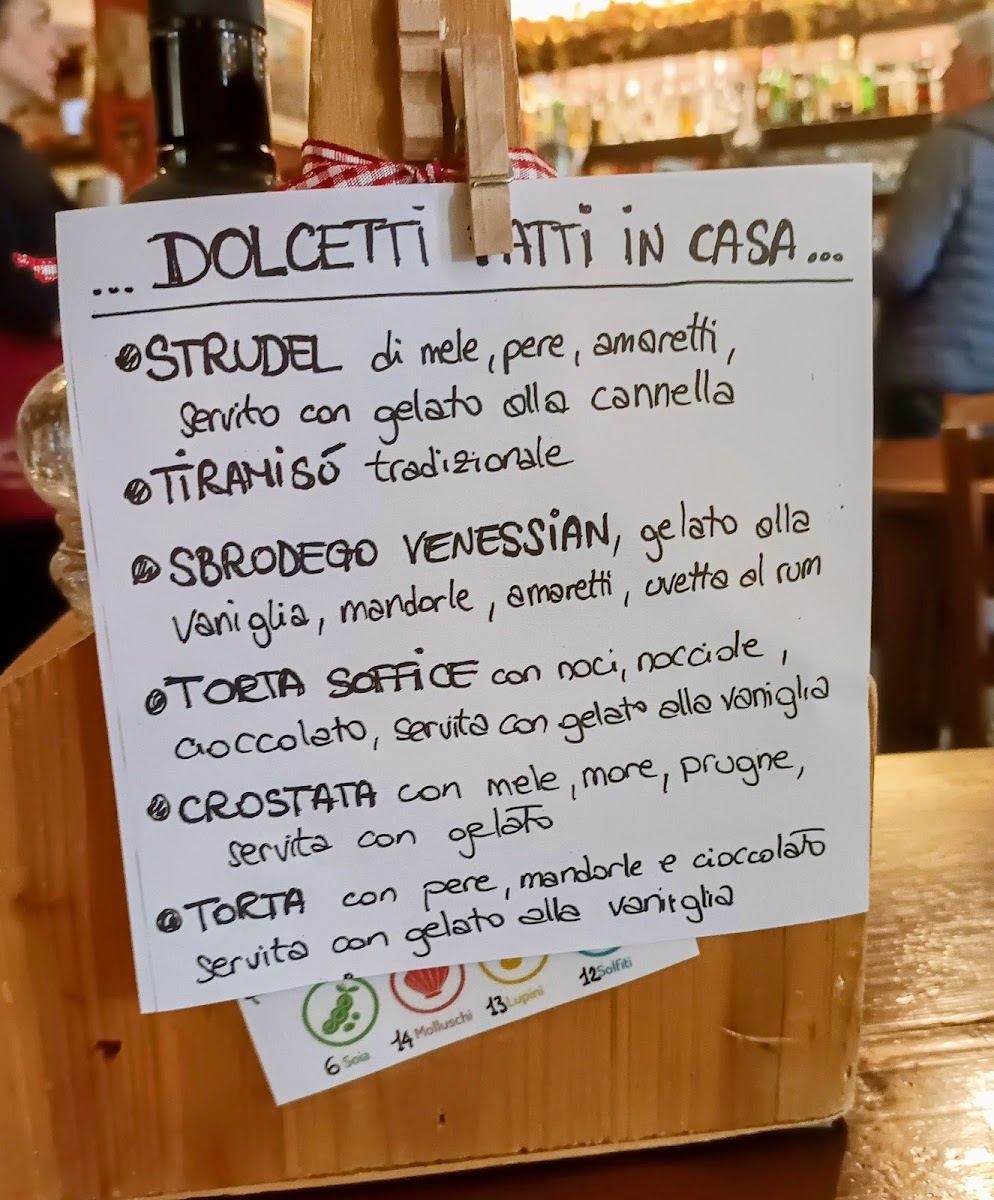 ... DOLCETTI FATTI IN CASA...
STRUDEL di mele, pere, amaretti,
servito con gelato alla cannella
TIRAMISÚ tradizionale
SBRODEGO VENESSIAN, gelato alla
vaniglia, mandorle, amaretti, uvetta al rum
TORTA SOFFICE con noci, nocciole,
cioccolato, servita con gelato alla vaniglia
CROSTATA con mele, more, prugne,
servita con gelato
TORTA con pere, mandorle e cioccolato
servita con gelato alla vaniglia
6 Soia 14 Molluschi 13 Lupini 12 Solfiti